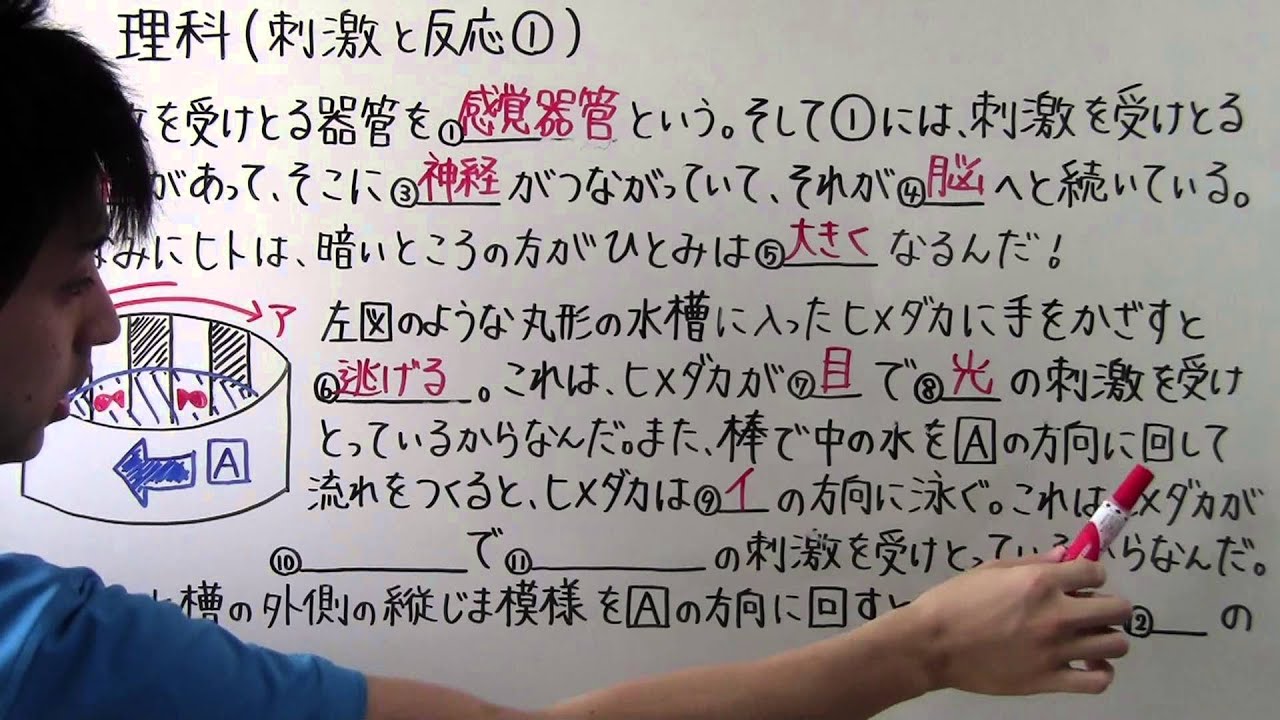 理科(刺激と反応①)
を受けとる器管を①感覚器管という。そして①には、刺激を受けとる
があって、そこに③神経がつながっていて、それが④脳へと続いている。
なみにヒトは、暗いところの方がひとみは⑤大きくなるんだ!
ア
左図のような丸形の水槽に入ったヒメダカに手をかざすと
⑥逃げる。これは、ヒメダカが⑦目で⑧光の刺激を受け
とっているからなんだ。また、棒で中の水をAの方向に回して
A
流れをつくると、ヒメダカは⑨イの方向に泳ぐ。これはヒメダカが
⑩で⑪の刺激を受けとっているからなんだ。
水槽の外側の縦じま模様をAの方向に回すと ⑫の